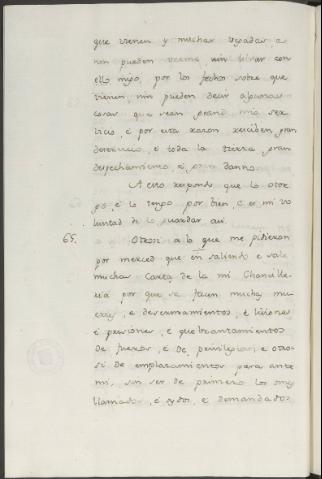 que vienen y muchas vegadas a
non pueden venir, nin librar con
ello mio, por los fechos sobre que
vienen, nin pueden decir algunas
cosas que sean grand mio ser
vicio, e por esta razon reciben gran
detenencia, e toda la tierra gran
despechamiento, e danno.
A esto respondo que lo otor
go, e lo tengo por bien, e es mi vo
luntad de lo guardar asi.
65. Otrosi a lo que me pidieron
por merced que en saliendo e sale
muchas Cartas de la mi Chancille-
ria por que se facen muchas mu
ertes, e desramamientos, e lisiones
e prisiones, e quebrantamientos
de fueros, e de privilegios, e otro
si de emplazamientos para ante
mi, sin ser de primero los
llamados, e oydos, e demandados